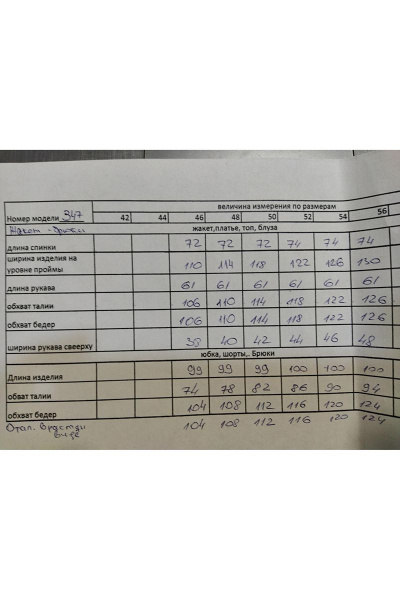 величина измерения по размерам
Номер модели 347 42 44 46 48 50 52 54 56
Жакет - брюки жакет,платье, топ, блуза
длина спинки 72 72 72 74 74 74
ширина изделия на уровне проймы 110 114 118 122 126 130
длина рукава 61 61 61 61 61 61
обхват талии 106 110 114 118 122 126
обхват бедер 106 110 114 118 122 126
ширина рукава свеерху 38 40 42 44 46 48
юбка, шорты,. Брюки
Длина изделия 99 99 99 100 100 100
обват талии 74 78 82 86 90 94
обхват бедер 104 108 112 116 120 124
в растян 104 108 112 116 120 124
виде